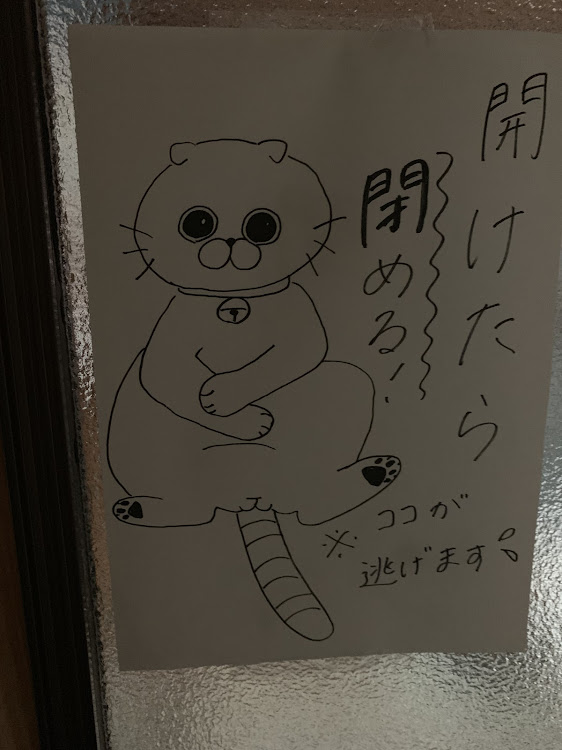 開けたら
閉める!
※ココが
逃げます